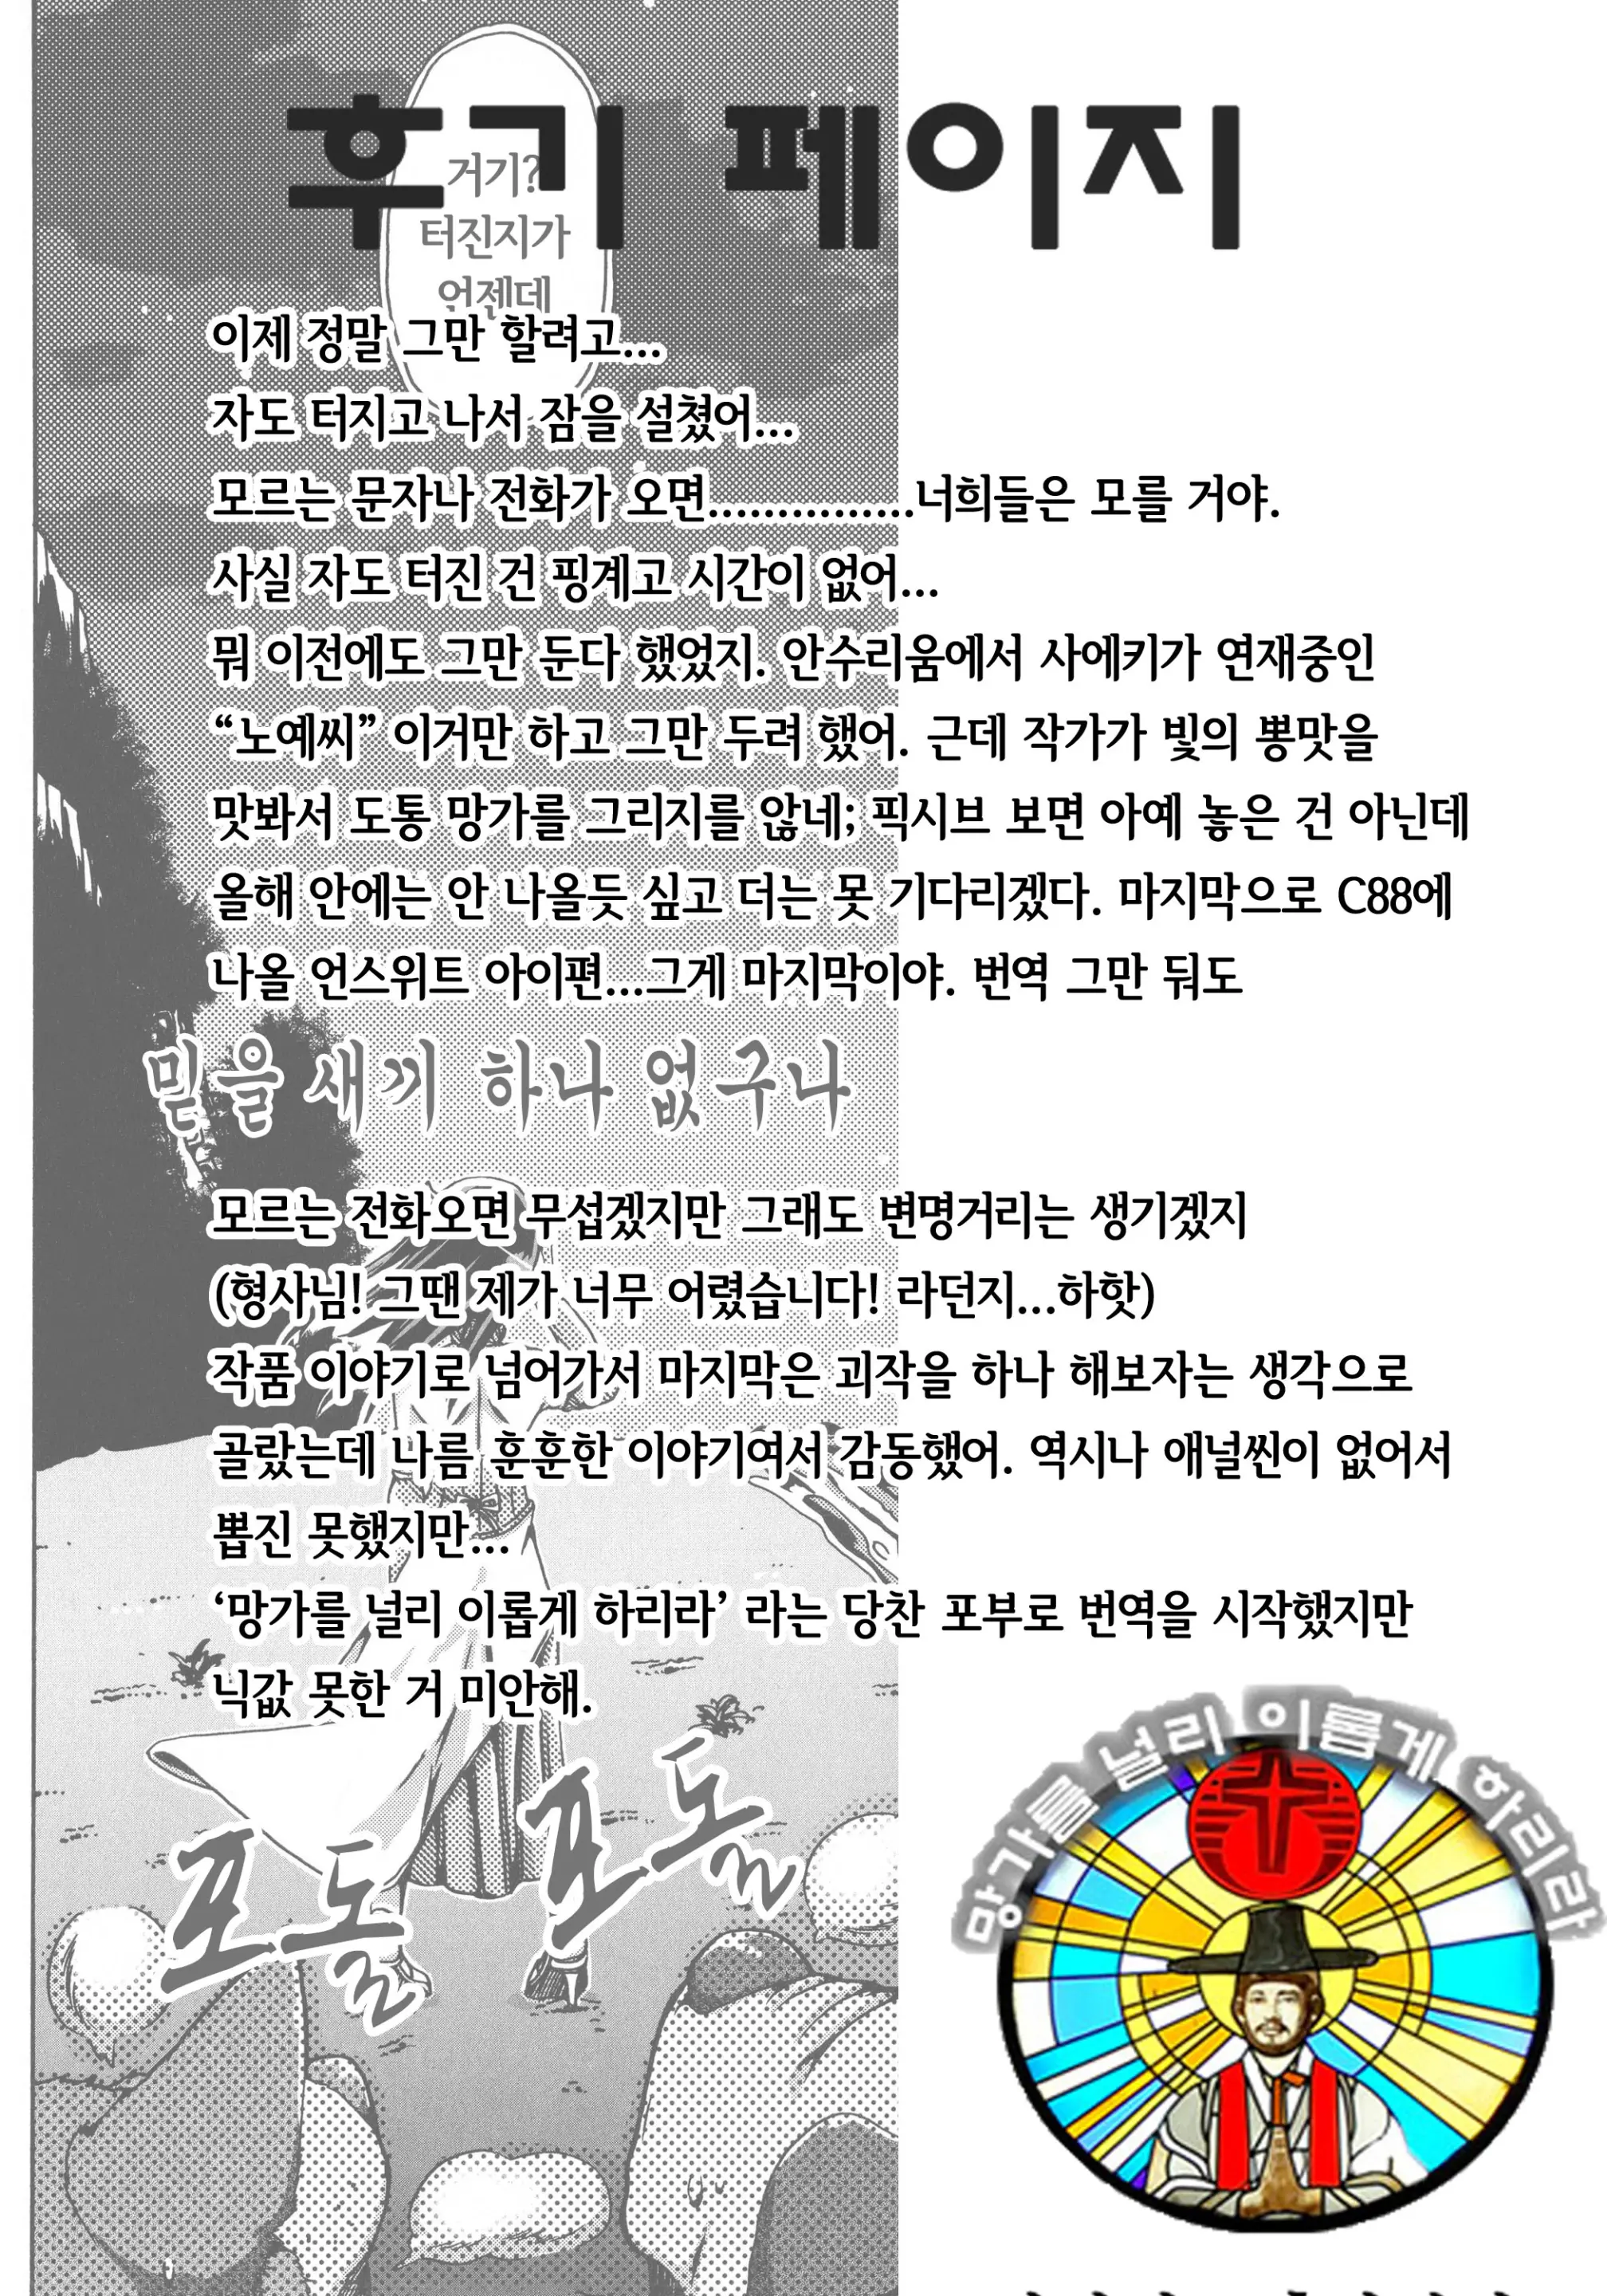 후기 페이지
거기?
터진지가
언젠데
이제 정말 그만 할려고...
자도 터지고 나서 잠을 설쳤어...
모르는 문자나 전화가 오면...............너희들은 모를 거야.
사실 자도 터진 건 핑계고 시간이 없어...
뭐 이전에도 그만 둔다 했었지. 안수리움에서 사에키가 연재중인
“노예씨” 이거만 하고 그만 두려 했어. 근데 작가가 빛의 뽕맛을
맛봐서 도통 망가를 그리지를 않네; 픽시브 보면 아예 놓은 건 아닌데
올해 안에는 안 나올듯 싶고 더는 못 기다리겠다. 마지막으로 C88에
나올 언스위트 아이편...그게 마지막이야. 번역 그만 둬도
믿을 새끼 하나 없구나
모르는 전화오면 무섭겠지만 그래도 변명거리는 생기겠지
(형사님! 그땐 제가 너무 어렸습니다! 라던지...하핫)
작품 이야기로 넘어가서 마지막은 괴작을 하나 해보자는 생각으로
골랐는데 나름 훈훈한 이야기여서 감동했어. 역시나 애널씬이 없어서
뽑진 못했지만...
‘망가를 널리 이롭게 하리라’ 라는 당찬 포부로 번역을 시작했지만
닉값 못한 거 미안해.
포돌
포돌
망가를 널리 이롭게 하리라